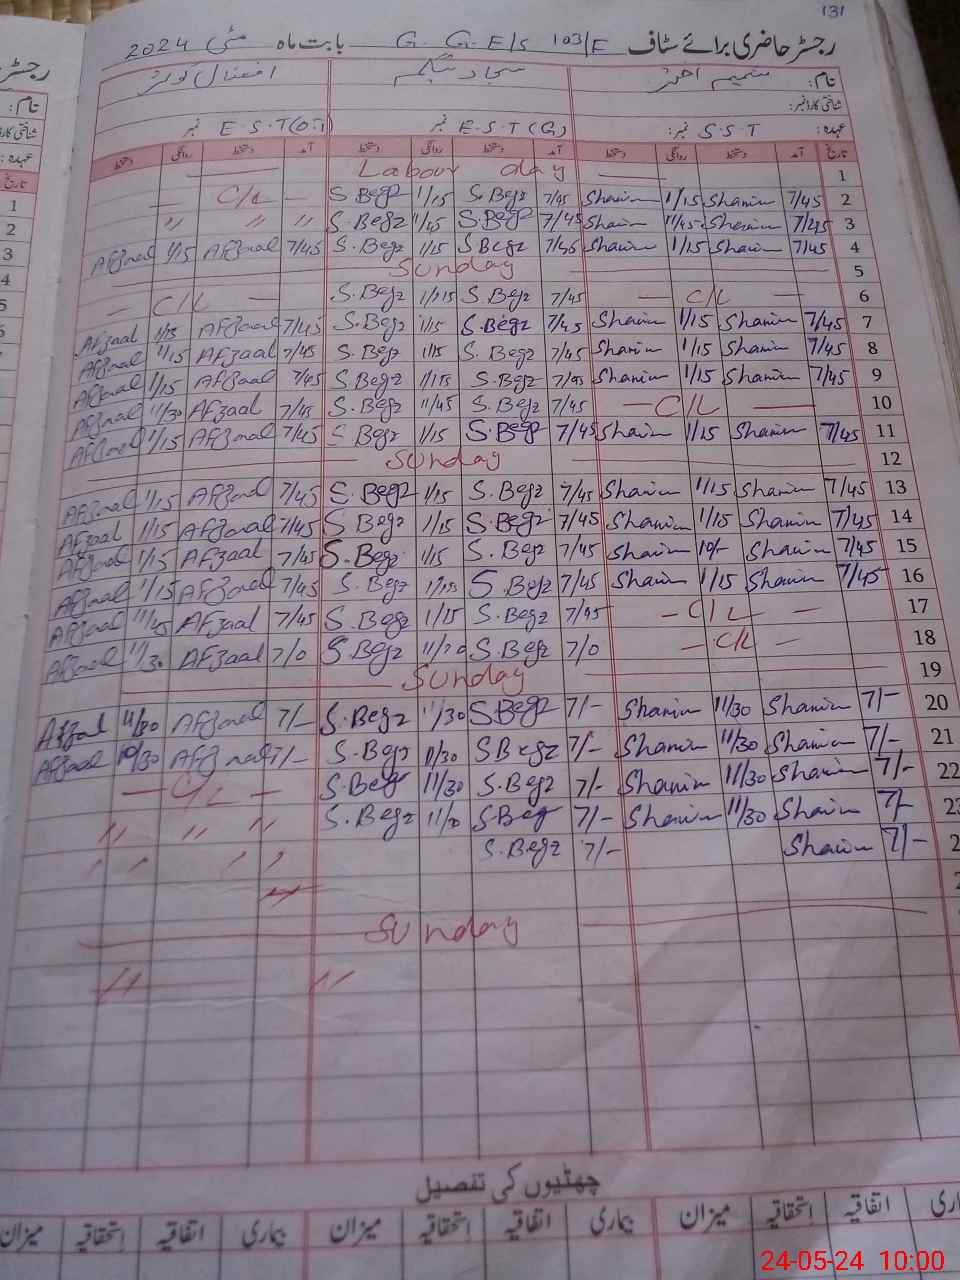 131
رجسٹر حاضری برائے سٹاف G. G. E/S 103/E بابت ماہ مئی 2024
نام: شمیم اختر سجاد بیگم افضال کوثر
شناختی کارڈ نمبر:
عہدہ: S.S.T نمبر: E.S.T (G) نمبر E.S.T (O.T) نمبر
تاریخ آمد دستخط روانگی دستخط آمد دستخط روانگی دستخط آمد دستخط روانگی دستخط
Labour day 1
C/L S.Begz 1/15 S.Begz 7/45 Shamim 1/15 Shamim 7/45 2
" " " S.Begz 11/45 S.Begz 7/45 Shamim 11/45 Shamim 7/45 3
Afzaal 1/15 Afzaal 7/45 S.Begz 1/15 S Begz 7/45 Shamim 1/15 Shamim 7/45 4
Sunday 5
C/L S.Begz 1/15 S.Begz 7/45 C/L 6
Afzaal 1/15 Afzaal 7/45 S.Begz 1/15 S.Begz 7/45 Shamim 1/15 Shamim 7/45 7
Afzaal 1/15 Afzaal 7/45 S.Begz 1/15 S.Begz 7/45 Shamim 1/15 Shamim 7/45 8
Afzaal 1/15 Afzaal 7/45 S.Begz 1/15 S.Begz 7/45 Shamim 1/15 Shamim 7/45 9
Afzaal 11/30 Afzaal 7/45 S.Begz 11/45 S.Begz 7/45 C/L 10
Afzaal 1/15 Afzaal 7/45 S Begz 1/15 S.Begz 7/45 Shamim 1/15 Shamim 7/45 11
Sunday 12
Afzaal 1/15 Afzaal 7/45 S.Begz 1/15 S.Begz 7/45 Shamim 1/15 Shamim 7/45 13
Afzaal 1/15 Afzaal 7/45 S Begz 1/15 S.Begz 7/45 Shamim 1/15 Shamim 7/45 14
Afzaal 1/15 Afzaal 7/45 S.Begz 1/15 S.Begz 7/45 Shamim 10/- Shamim 7/45 15
Afzaal 1/15 Afzaal 7/45 S.Begz 1/15 S.Begz 7/45 Shamim 1/15 Shamim 7/45 16
Afzaal 11/45 Afzaal 7/45 S.Begz 1/15 S.Begz 7/45 C/L 17
Afzaal 11/30 Afzaal 7/0 S.Begz S.Begz 7/0 C/L 18
Sunday 19
Afzaal 11/30 Afzaal 7/- S.Begz 11/30 S.Begz 7/- Shamim 11/30 Shamim 7/- 20
Afzaal 10/30 Afzaal 7/- S.Begz 11/30 S Begz 7/- Shamim 11/30 Shamim 7/- 21
C/L S.Beg 11/30 S.Begz 7/- Shamim 11/30 Shamim 7/- 22
" " " S.Begz S Beg 7/- Shamim 11/30 Shamim 7/- 23
" " S.Begz 7/- Shamim 7/- 2
Sunday
" "
چھٹیوں کی تفصیل
اتفاقیہ استحقاقیہ میزان بیماری اتفاقیہ استحقاقیہ میزان بیماری اتفاقیہ استحقاقیہ میزان
24-05-24 10:00